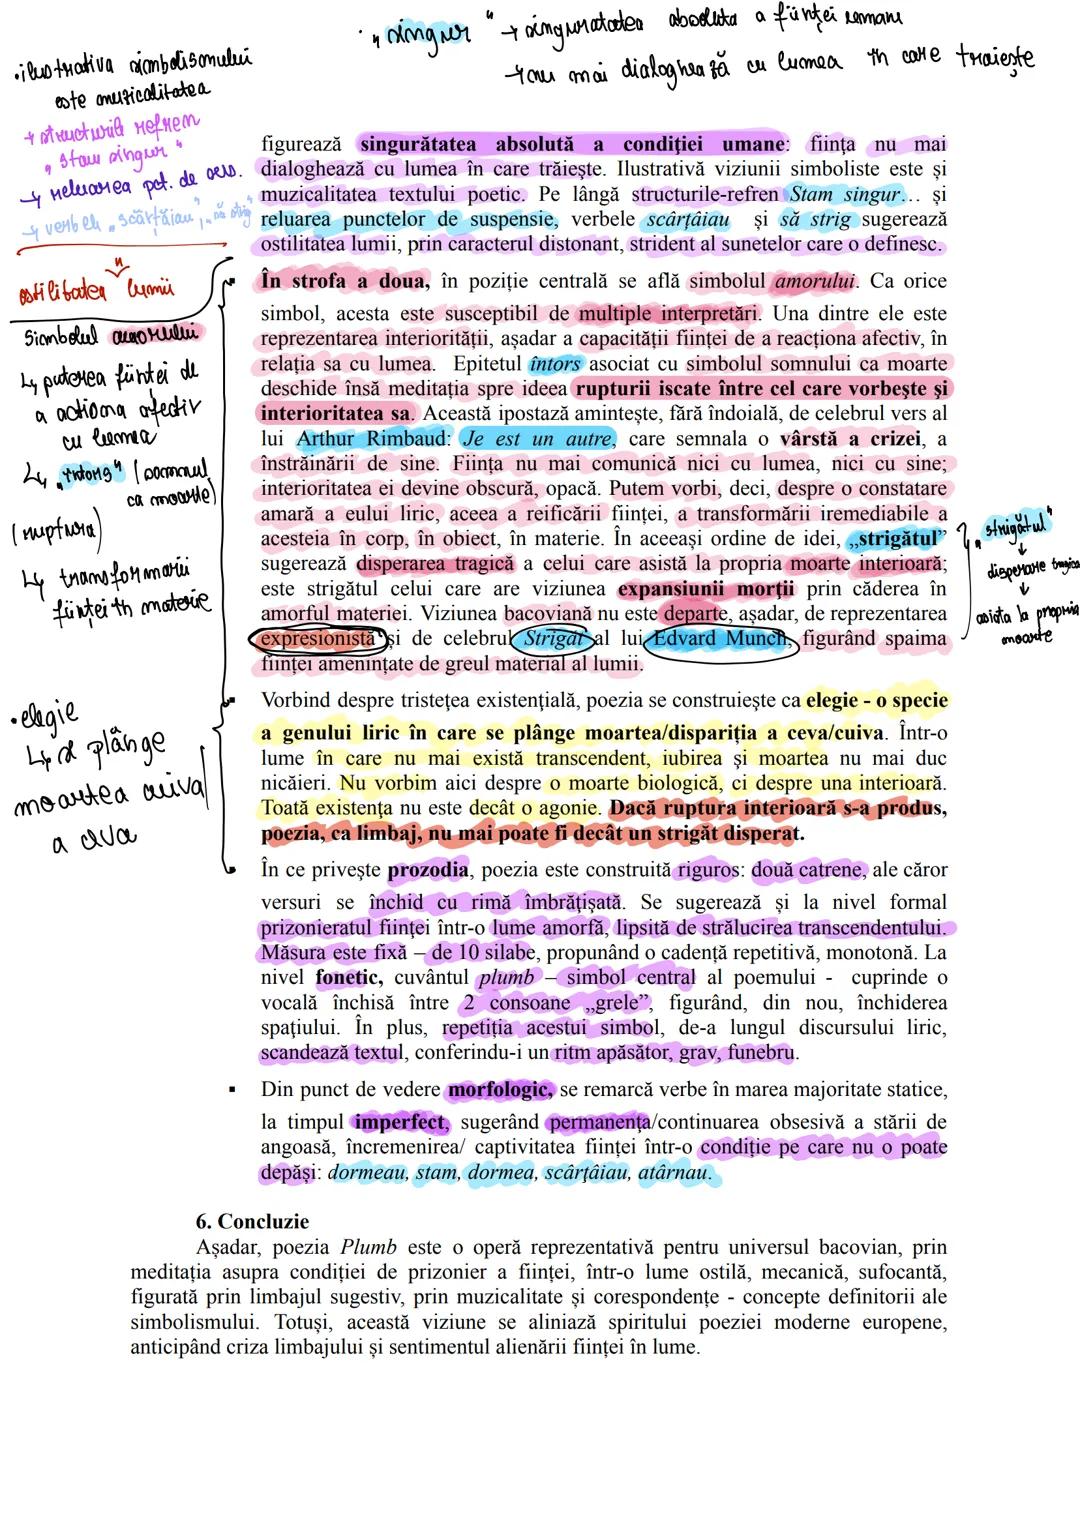 • „singur" → singuratatea absoluta a ființei umane
→ nu mai dialoghează cu lumea în care trăiește
• ilustrativa simbolismului
este muzicalitatea
→ structurile refren
„Stau singur"
→ reluarea pct. de
→ verbele „scârțâiau", „să strig"
ostilitatea lumii
Simbolul amorului
↳ puterea ființei de
a actiona afectiv
cu lumea
↳ „întors" (somnul
ca moarte)
(ruptura)
↳ transformarii
ființei în materie
• elegie
↳ se plânge
moartea cuiva/
a ceva
figurează singurătatea absolută a condiţiei umane: ființa nu mai
dialoghează cu lumea în care trăiește. Ilustrativă viziunii simboliste este și
muzicalitatea textului poetic. Pe lângă structurile-refren Stam singur… și
reluarea punctelor de suspensie, verbele scârțâiau și să strig sugerează
ostilitatea lumii, prin caracterul distonant, strident al sunetelor care o definesc.
▪ În strofa a doua, în poziție centrală se află simbolul amorului. Ca orice
simbol, acesta este susceptibil de multiple interpretări. Una dintre ele este
reprezentarea interiorității, așadar a capacității ființei de a reacționa afectiv, în
relația sa cu lumea. Epitetul întors asociat cu simbolul somnului ca moarte
deschide însă meditația spre ideea rupturii iscate între cel care vorbește și
interioritatea sa. Această ipostază amintește, fără îndoială, de celebrul vers al
lui Arthur Rimbaud: Je est un autre, care semnala o vârstă a crizei, a
înstrăinării de sine. Ființa nu mai comunică nici cu lumea, nici cu sine;
interioritatea ei devine obscură, opacă. Putem vorbi, deci, despre o constatare
amară a eului liric, aceea a reificării ființei, a transformării iremediabile a
acesteia în corp, în obiect, în materie. În aceeași ordine de idei, „strigătul"
sugerează disperarea tragică a celui care asistă la propria moarte interioară;
este strigătul celui care are viziunea expansiunii morții prin căderea în
amorful materiei. Viziunea bacoviană nu este departe, așadar, de reprezentarea
expresionistă și de celebrul Strigăt al lui Edvard Munch, figurând spaima
ființei amenințate de greul material al lumii.
„strigătul"
↓
disperare tragica
↓
asista la propria
moarte
▪ Vorbind despre tristețea existențială, poezia se construiește ca elegie - o specie
a genului liric în care se plânge moartea/dispariția a ceva/cuiva. Într-o
lume în care nu mai există transcendent, iubirea și moartea nu mai duc
nicăieri. Nu vorbim aici despre o moarte biologică, ci despre una interioară.
Toată existența nu este decât o agonie. Dacă ruptura interioară s-a produs,
poezia, ca limbaj, nu mai poate fi decât un strigăt disperat.
▪ În ce privește prozodia, poezia este construită riguros: două catrene, ale căror
versuri se închid cu rimă îmbrățișată. Se sugerează și la nivel formal
prizonieratul ființei într-o lume amorfă, lipsită de strălucirea transcendentului.
Măsura este fixă – de 10 silabe, propunând o cadență repetitivă, monotonă. La
nivel fonetic, cuvântul plumb – simbol central al poemului - cuprinde o
vocală închisă între 2 consoane „grele", figurând, din nou, închiderea
spațiului. În plus, repetiția acestui simbol, de-a lungul discursului liric,
scandează textul, conferindu-i un ritm apăsător, grav, funebru.
▪ Din punct de vedere morfologic, se remarcă verbe în marea majoritate statice,
la timpul imperfect, sugerând permanența/continuarea obsesivă a stării de
angoasă, încremenirea/ captivitatea ființei într-o condiție pe care nu o poate
depăși: dormeau, stam, dormea, scârțâiau, atârnau.
6. Concluzie
Așadar, poezia Plumb este o operă reprezentativă pentru universul bacovian, prin
meditația asupra condiției de prizonier a ființei, într-o lume ostilă, mecanică, sufocantă,
figurată prin limbajul sugestiv, prin muzicalitate și corespondențe - concepte definitorii ale
simbolismului. Totuși, această viziune se aliniază spiritului poeziei moderne europene,
anticipând criza limbajului și sentimentul alienării ființei în lume.